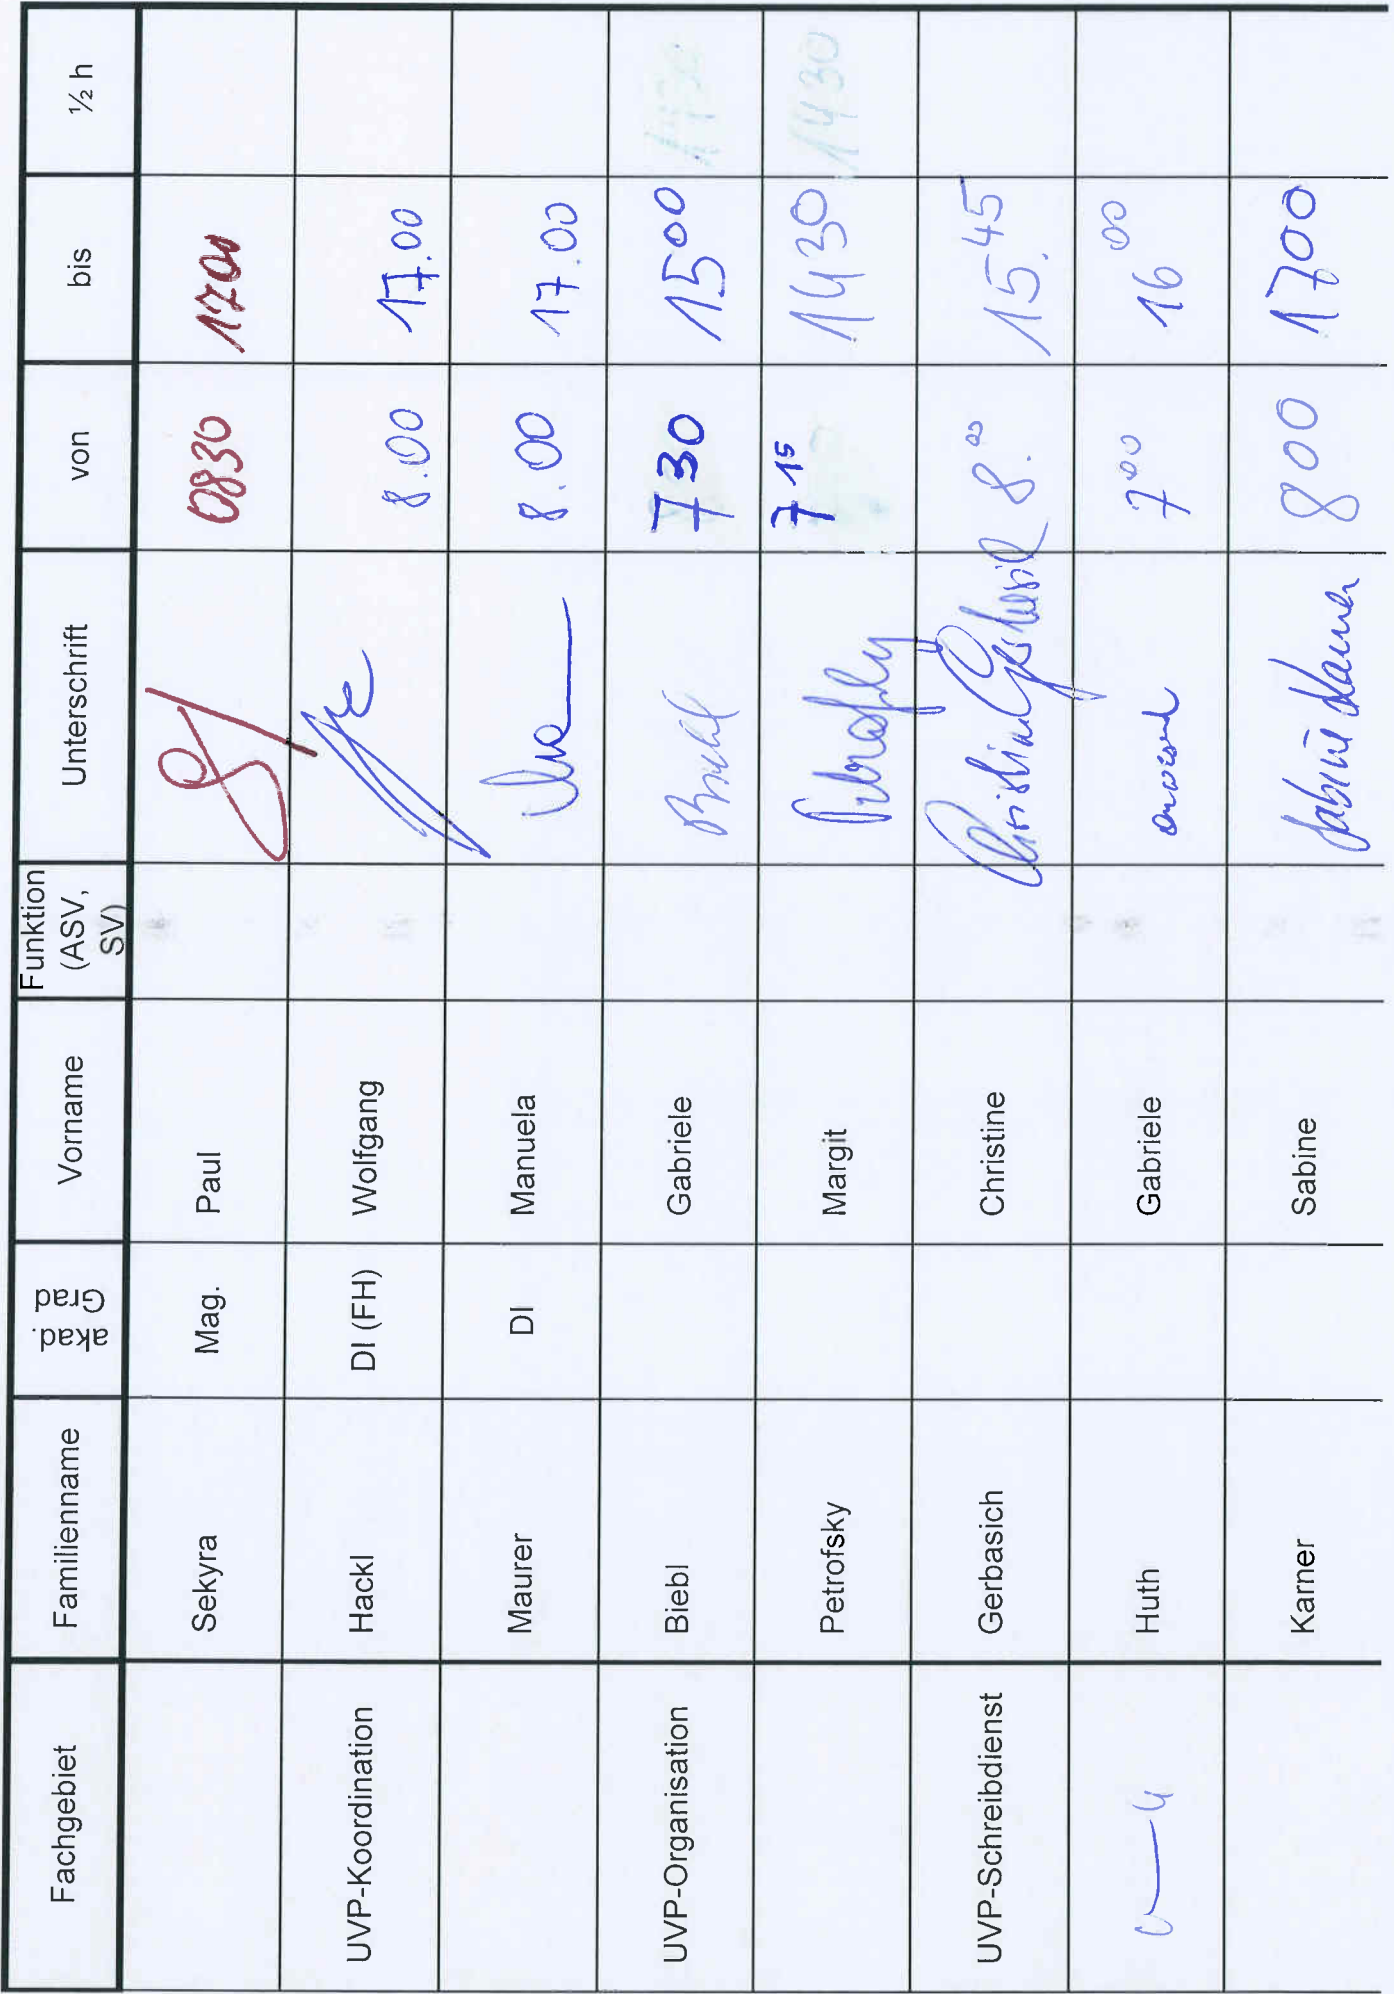 Fachgebiet Familienname akad. Grad Vorname Funktion (ASV, SV) Unterschrift von bis ½ h
Sekyra Mag. Paul 0830 1700
UVP-Koordination Hackl DI (FH) Wolfgang 8.00 17.00
Maurer DI Manuela 8.00 17.00
UVP-Organisation Biebl Gabriele Biebl 730 1500
Petrofsky Margit Petrofsky 7 15 1430 1430
UVP-Schreibdienst Gerbasich Christine Christine Gerbasich 8.00 15.45
Huth Gabriele 7 00 16 00
Karner Sabine Sabine Karner 800 1700